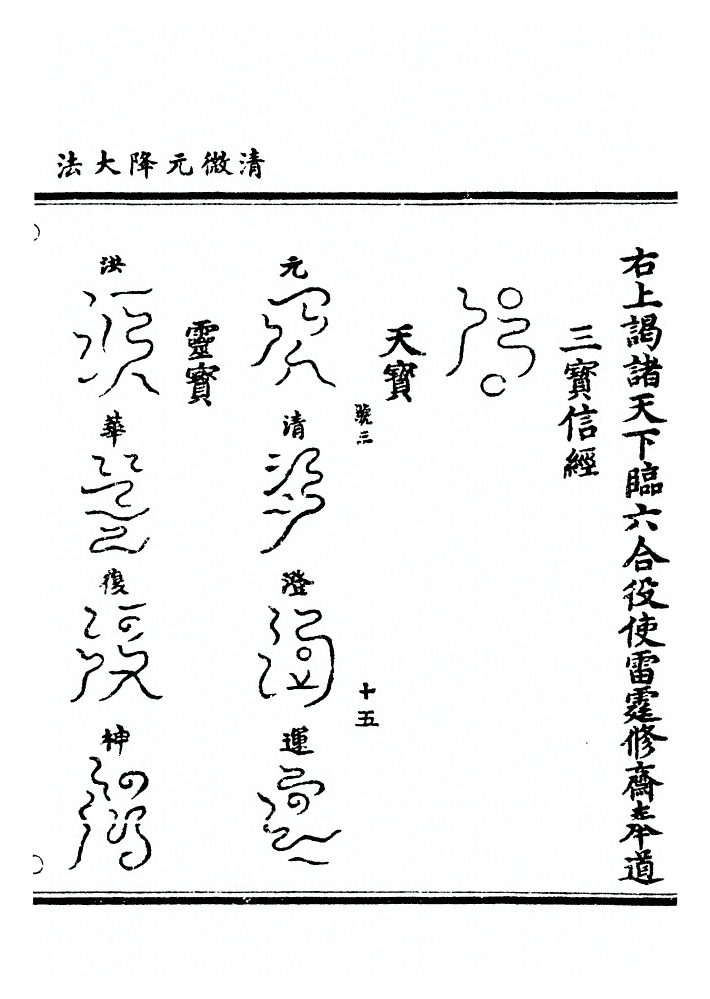 清微元降大法
右上謁諸天下臨六合役使雷霆修齋奉道
三寶信經
天寶
號三
十五
元
清
澄
運
靈寶
洪
華
復
神